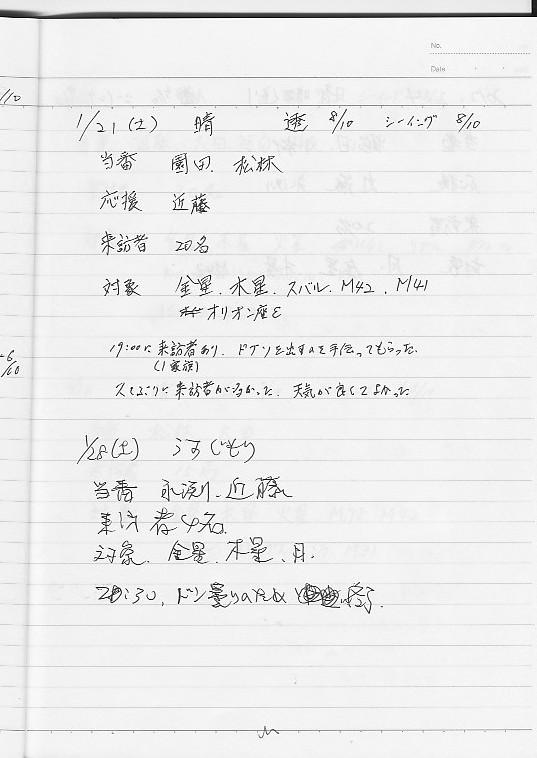 No.
Date
1/21(土) 晴 透 8/10 シーイング 8/10
当番 園田、松林
応援 近藤
来訪者 20名
対象 金星、木星、スバル、M42、M41
オリオン座ε
19:00に来訪者あり、ドブソンを出すのを手伝ってもらった。
(1家族)
久しぶりに来訪者が多かった、天気が良くてよかった
1/28(土) うすぐもり
当番 永渕、近藤
来訪者4名
対象、金星、木星、月.
20:30, ドン曇りのため 終了.
/10
-6
/10